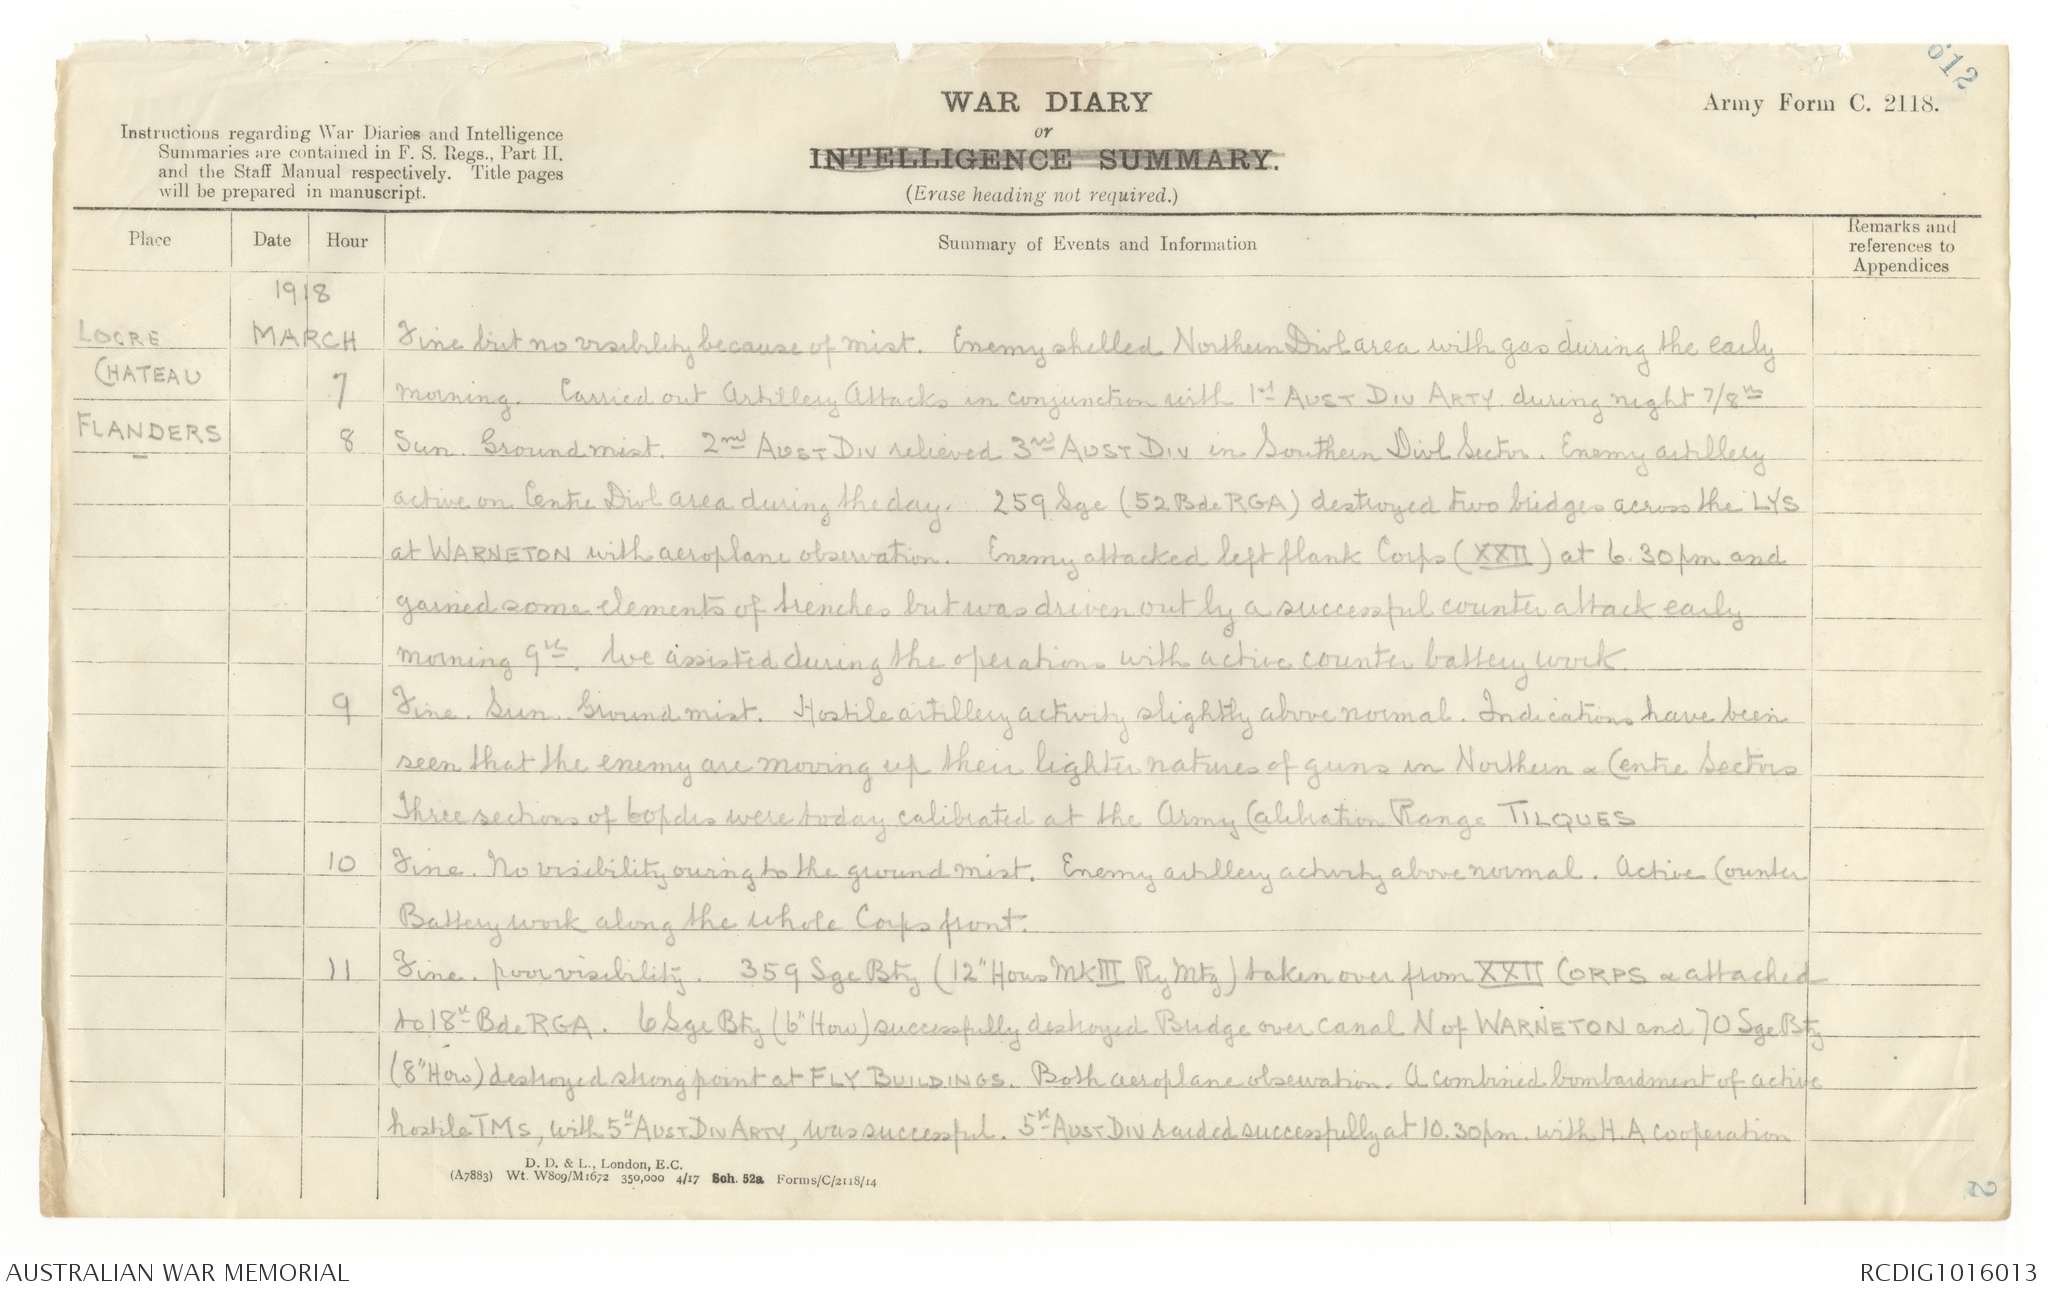 612
WAR DIARY
or
INTELLIGENCE SUMMARY.
(Erase heading not required.)
Army Form C. 2118.
Instructions regarding War Diaries and Intelligence
Summaries are contained in F. S. Regs., Part II.
and the Staff Manual respectively. Title pages
will be prepared in manuscript.
Place Date Hour Summary of Events and Information Remarks and references to Appendices
1918
LOCRE MARCH Fine but no visibility because of mist. Enemy shelled Northern Divl area with gas during the early
CHATEAU 7 morning. Carried out Artillery Attacks in conjunction with 1st AUST DIV ARTY. during night 7/8th
FLANDERS 8 Sun. Ground mist. 2nd AUST DIV relieved 3rd AUST DIV in Southern Divl Sector. Enemy artillery
active on Centre Divl area during the day. 259 Sge (52 Bde RGA) destroyed two bridges across the LYS
at WARNETON with aeroplane observation. Enemy attacked left flank Corps (XXII) at 6.30pm and
gained some elements of trenches but was driven out by a successful counter attack early
morning 9th. We assisted during the operations with active counter battery work.
9 Fine. Sun. Ground mist. Hostile artillery activity slightly above normal. Indications have been
seen that the enemy are moving up their lighter natures of guns in Northern & Centre Sectors
Three sections of 60pdrs were today calibrated at the Army Calibration Range TILQUES
10 Fine. No visibility owing to the ground mist. Enemy artillery activity above normal. Active Counter
Battery work along the whole Corps front.
11 Fine. poor visibility. 359 Sge Bty (12" Hows Mk III Ry Mtg) taken over from XXII CORPS & attached
to 18th Bde RGA. 6 Sge Bty (6" How) successfully destroyed Bridge over canal N of WARNETON and 70 Sge Bty
(8" How) destroyed strong point at FLY BUILDINGS. Both aeroplane observation. A combined bombardment of active
hostile TMs, with 5th AUST DIV ARTY, was successful. 5th AUST DIV raided successfully at 10.30pm. with H.A cooperation
D. D. & L., London, E.C.
(A7883) Wt. W809/M1672 350,000 4/17 Sch. 52a Forms/C/2118/14
2
AUSTRALIAN WAR MEMORIAL
RCDIG1016013